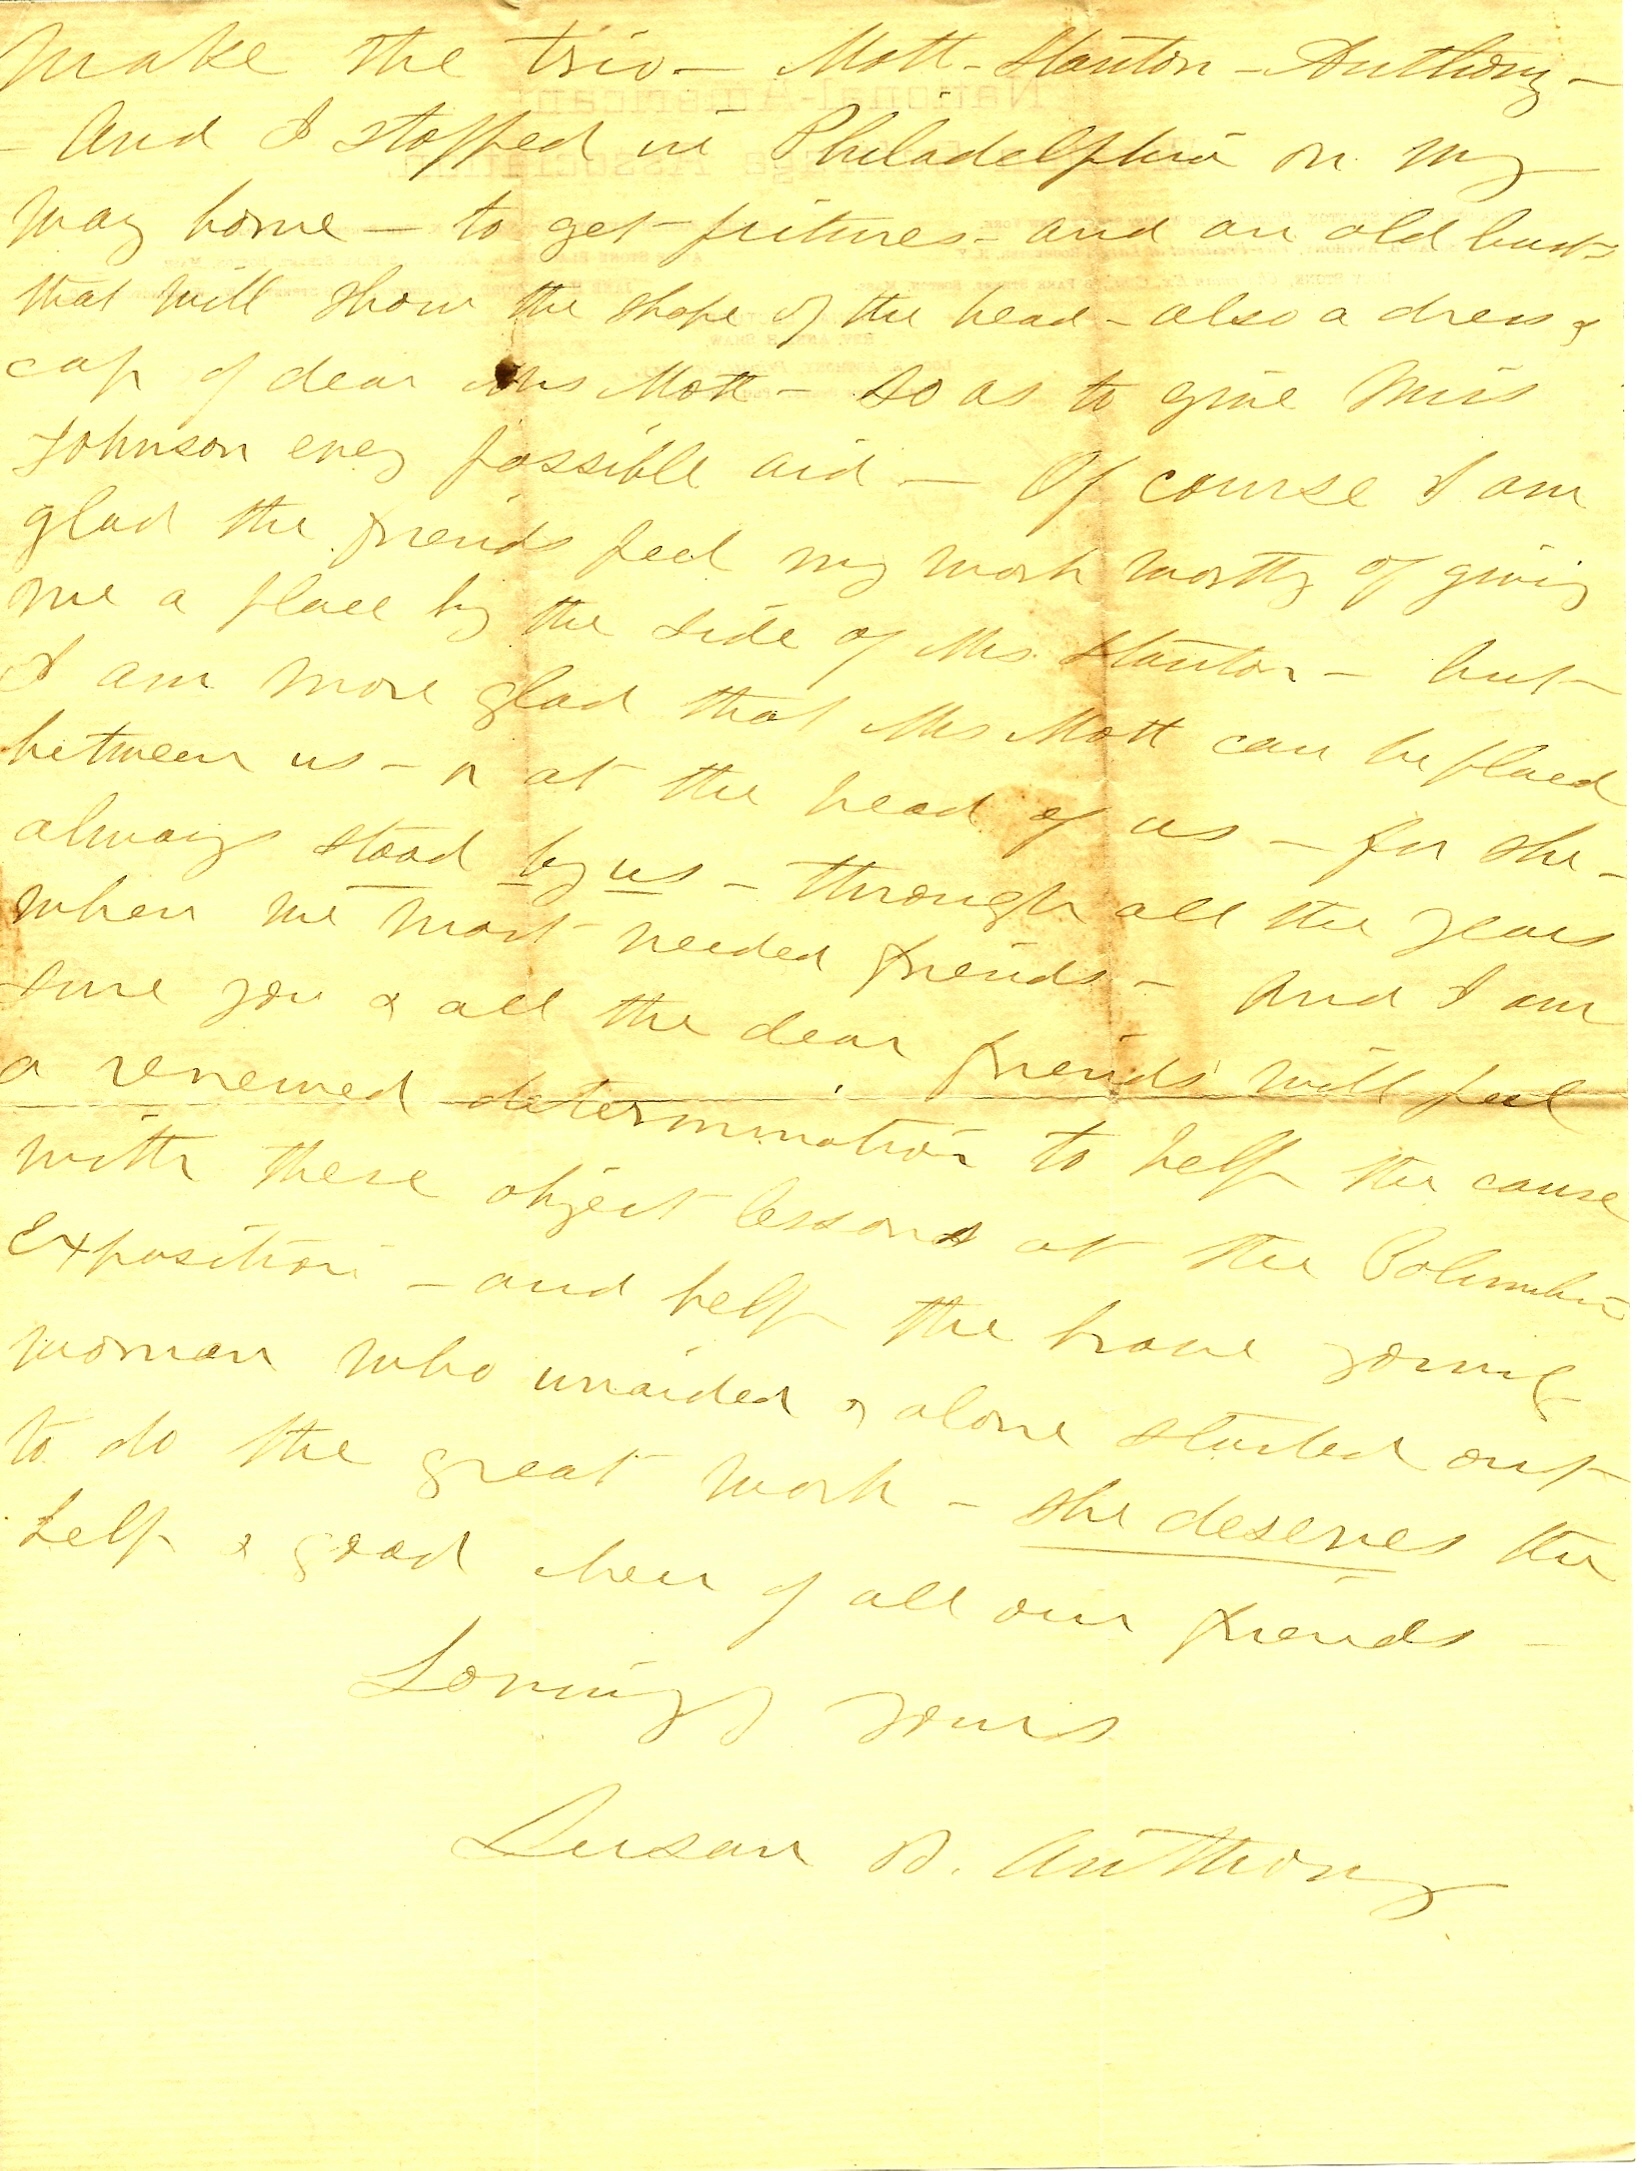 make the trio — Mott - Stanton - Anthony -
- And I stopped in Philadelphia on my
way home — to get pictures - and an old bust -
that will show the shape of the head - also a dress &
cap of dear Mrs Mott - so as to give Miss
Johnson every possible aid — Of course I am
glad the friends feel my work worthy of giving
me a place by the side of Mrs. Stanton - but -
I am more glad that Mrs Mott can be placed
between us - or at the head of us - for she -
always stood by us - through all the years
when we most needed friends - And I am
sure you & all the dear friends will feel
a renewed determination to help the cause
with these object lessons at the Columbian
Exposition - and help the brave young
woman who unaided & alone started out
to do the great work - she deserves the
help & good cheer of all our friends -
Lovingly yours
Susan B. Anthony
National-American
Suffrage Association
REV. ANNA H. SHAW,